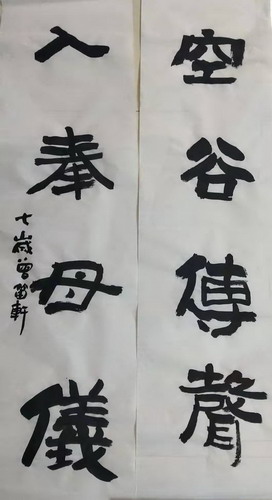 空谷傳聲
入奉母儀
七歲曾笛軒